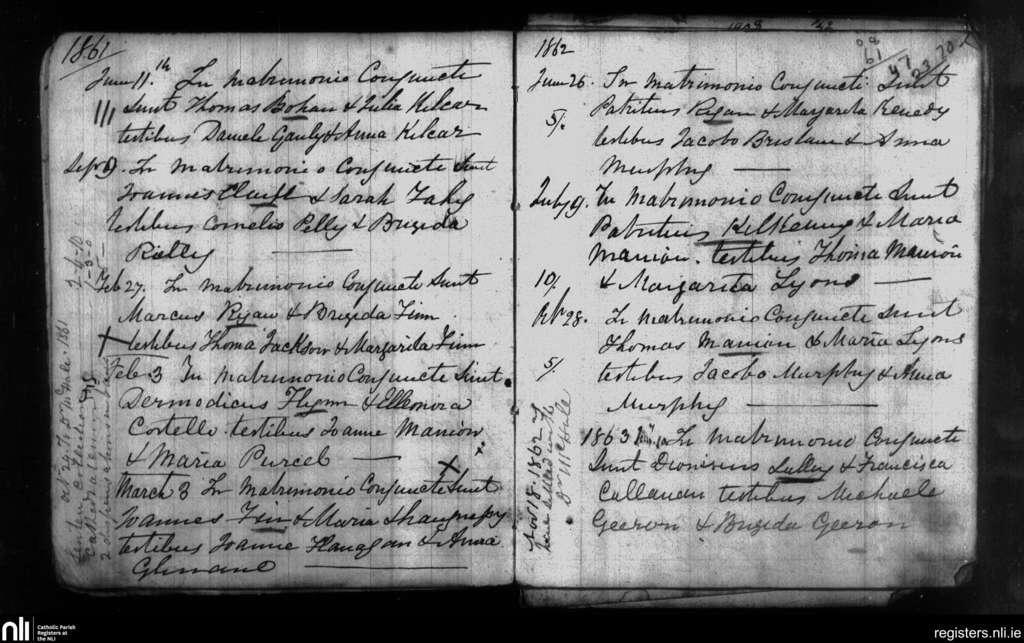 1861
June 11.th In Matrimonio Conjuncte
Sunt Thomas Bohan & Julia Kilcar
testibus Daniele Gauly & Anna Kilcar
Sept 9. In Matrimonio Conjuncte Sunt
Joannes & Sarah Fahy
testibus Cornelio Pelly & Brigida
Rielly
Feb 27. In Matrimonio Conjuncte Sunt
Marcus Ryan & Brigida Finn
testibus Thoma Jackson & Margarita Finn
Feb 3 In Matrimonio Conjuncte Sunt
Dermodicus Flynn & Elleonora
Costello testibus Joanne Manion
& Maria Purcel
March 3 In Matrimonio Conjuncte Sunt
Joannes Fin & Maria
testibus Joanne Flanagan & Anna
1862
June 26. In Matrimonio Conjuncti Sunt
Patritius Ryan & Margarita Kenedy
5/.
testibus Jacobo & Anna
Murphy
July 9. In Matrimonio Conjuncte Sunt
Patritius Kilkenny & Maria
Manion. testibus Thoma Manion
10/.
& Margarita Lyons
28. In Matrimonio Conjuncte Sunt
Thomas Manion & Maria Lyons
5/.
testibus Jacobo Murphy & Anna
Murphy
1863 In Matrimonio Conjuncte
Sunt Dionisius Lally & Francisca
Callanan testibus Michaele
Geeron & Brigida Geeron
61
47
23
70
Nov 18. 1862
nli
Catholic Parish
Registers at
the NLI
registers.nli.ie